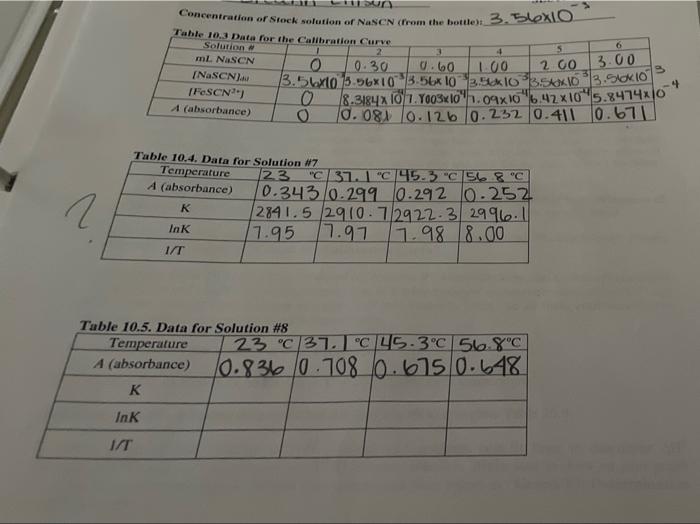 Concentration of Stock solution of NaSCN (from the bottle): 3.56x10⁻³
Table 10.3 Data for the Calibration Curve
Solution # 1 2 3 4 5 6
mL NaSCN 0 0.30 0.60 1.00 2.00 3.00
[NaSCN]dil 3.56x10⁻³ 3.56x10⁻³ 3.56x10⁻³ 3.56x10⁻³ 3.56x10⁻³ 3.56x10⁻³
[FeSCN²⁺] 0 8.3184x10⁻⁴ 7.7003x10⁻⁴ 7.09x10⁻⁴ 6.42x10⁻⁴ 5.8474x10⁻⁴
A (absorbance) 0 0.081 0.126 0.232 0.411 0.671
Table 10.4. Data for Solution #7
Temperature 23 °C 37.1 °C 45.3 °C 56.8 °C
A (absorbance) 0.343 0.299 0.292 0.252
?
K 2841.5 2910.7 2922.3 2996.1
lnK 7.95 7.97 7.98 8.00
1/T
Table 10.5. Data for Solution #8
Temperature 23 °C 37.1 °C 45.3 °C 56.8 °C
A (absorbance) 0.836 0.708 0.675 0.648
K
lnK
1/T